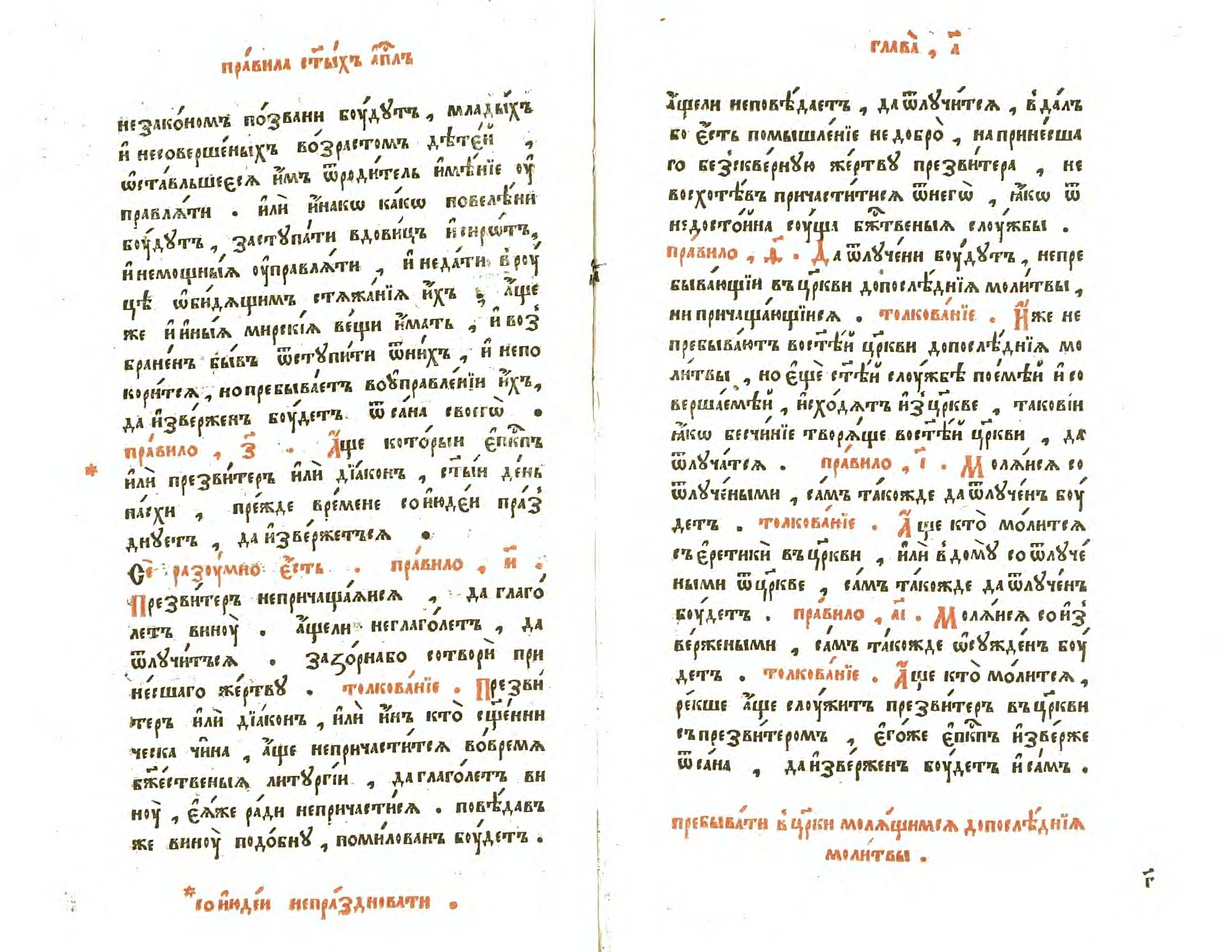 пра́вила ст҃ы́хъ а҆п҃лъ
незако́номъ по́звани боу́дꙋтъ , млады́хъ
и҆ несоверше́ныхъ во́зрастомъ дѣте́й ,
ѡ҆ста́вльшеесѧ и҆́мъ ѿроди́тель и҆мѣ́нїе оу҆
правлѧ́ти . и҆лѝ и҆́накѡ ка́кѡ повелѣ́ни
боу́дꙋтъ , застꙋпа́ти вдови́цъ и҆сирѡ́тъ,
и҆немощны́ѧ оу҆правлѧ́ти , и҆неда́ти в̾роу
цѣ̀ ѡ҆би́дѧщимъ стѧжа́нїѧ и҆́хъ , а҆́ще
же и҆ и҆ны́ѧ мирскі́ѧ ве́щи и҆́мать , и҆ воз̾
бране́нъ бы́въ ѿстꙋпи́ти ѿни́хъ , и҆ непо
кори́тсѧ , но пребыва́етъ воуправле́нїи и҆́хъ,
да и҆зве́рженъ боу́детъ ѿ са́на своегѡ̀ .
пра́вило , з҃ . А҆́ще кото́рыи є҆п҃кпъ
и҆лѝ презви́теръ и҆лѝ дїа́конъ , ст҃ы́и де́нь
па́схи , пре́жде вре́мене со и҆юде́и пра́з̾
днꙋетъ , да и҆зве́ржетъсѧ .
Сѐ разоу́мно є҆́сть . пра́вило , и҃ .
Презви́теръ непричаща́ѧисѧ , да глаго́
летъ виноу̀ . а҆́щели неглаго́летъ , да
ѿлꙋчи́тъсѧ . заꙁо́рнабо сотворѝ при
не́сшаго же́ртвꙋ . толкова́нїе . Презви́
теръ и҆лѝ дїа́конъ , и҆лѝ и҆́нъ кто̀ сщ҃е́нни
ческа чи́на , а҆́ще непричасти́тсѧ во́времѧ
бж҃е́ственыѧ литꙋргі́и , да глаго́летъ ви
ноу̀ , є҆ѧ́же ра́ди непричасти́сѧ . повѣ́давъ
же виноу̀ подо́бнꙋ , поми́лованъ боу́детъ .
* со и҆юде́и непра́здновати .
глава̀ , а҃
а҆́щели неповѣ́даетъ , да ѿлꙋчи́тсѧ , в̾да́лъ
бо є҆́сть помышле́нїе недобро̀ , на прине́сша
го без̾скве́рнꙋю же́ртвꙋ презви́тера , не
восхотѣ́въ причасти́тисѧ ѿнегѡ̀ , ꙗ҆́кѡ ѿ
недосто́йна соу́ща бж҃твеныѧ слоу́жбы .
пра́вило , ѳ҃ . Да ѿлꙋче́ни боу́дꙋтъ , непре
быва́ющїи въ цр҃кви допослѣ́днїѧ моли́твы ,
ни причаща́ющїисѧ . толкова́нїе . И҆́же не
пребыва́ютъ востѣ́й цр҃кви допослѣ́днїѧ мо
ли́твы , но є҆щѐ ст҃ѣ́й слоу́жбѣ пое́мѣй и҆ со
верша́емѣй , и҆схо́дѧтъ и҆з̾ цр҃кве , такові́и
ꙗ҆́кѡ бесчи́нїе творѧ́ще востѣ́й цр҃кви , да
ѿлꙋча́тсѧ . пра́вило , і҃ . Молѧ́исѧ со
ѿлꙋче́ными , са́мъ та́кожде да ѿлꙋче́нъ боу́
детъ . толкова́нїе . А҆́ще кто̀ мо́литсѧ
съ є҆ретикѝ въ цр҃кви , и҆лѝ в̾ до́мꙋ со ѿлꙋче́
ными ѿ цр҃кве , са́мъ та́кожде да ѿлꙋче́нъ
боу́детъ . пра́вило , а҃і . Молѧ́исѧ со и҆з̾
ве́ржеными , са́мъ та́кожде ѡ҆сꙋжде́нъ боу́
детъ . толкова́нїе . А҆́ще кто̀ мо́литсѧ ,
ре́кше а҆́ще слоу́житъ презви́теръ въ цр҃кви
съ презви́теромъ , є҆го́же є҆п҃кпъ и҆зве́рже
ѿ са́на , да и҆зве́рженъ боу́детъ и҆ са́мъ .
пребыва́ти в̾ цр҃ки молѧ́щимсѧ допослѣ́днїѧ
моли́твы .
г҃